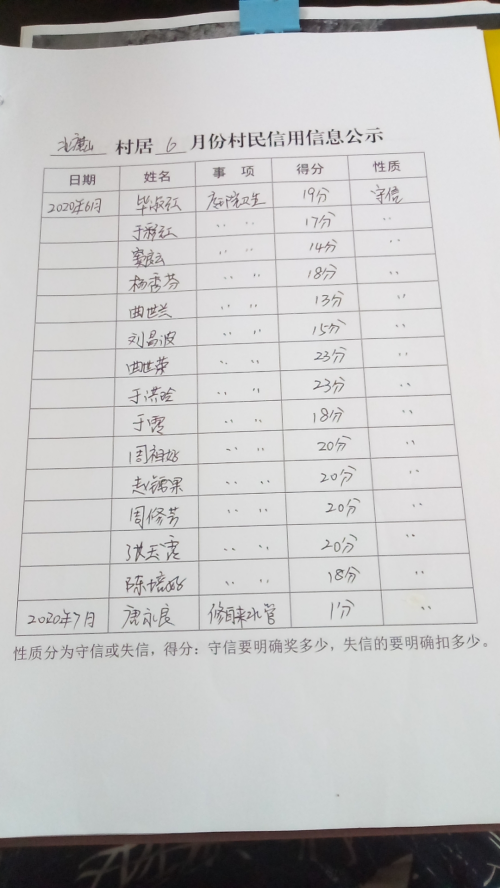 村居 6 月份村民信用信息公示
日期 姓名 事 项 得分 性质
2020年6月 毕淑红 庭院卫生 19分 守信
于翠红 〃 〃 17分 〃
〃 〃 14分 〃
杨香芬 〃 〃 18分 〃
曲世兰 〃 〃 13分 〃
刘昌波 〃 〃 15分 〃
曲世荣 〃 〃 23分 〃
于洪晗 〃 〃 23分 〃
于霞 〃 〃 18分 〃
周祖好 〃 〃 20分 〃
〃 〃 20分 〃
周修芳 〃 〃 20分 〃
张玉霞 〃 〃 20分 〃
陈培好 〃 〃 18分 〃
2020年7月 唐永良 修自来水管 1分 〃
性质分为守信或失信，得分：守信要明确奖多少，失信的要明确扣多少。